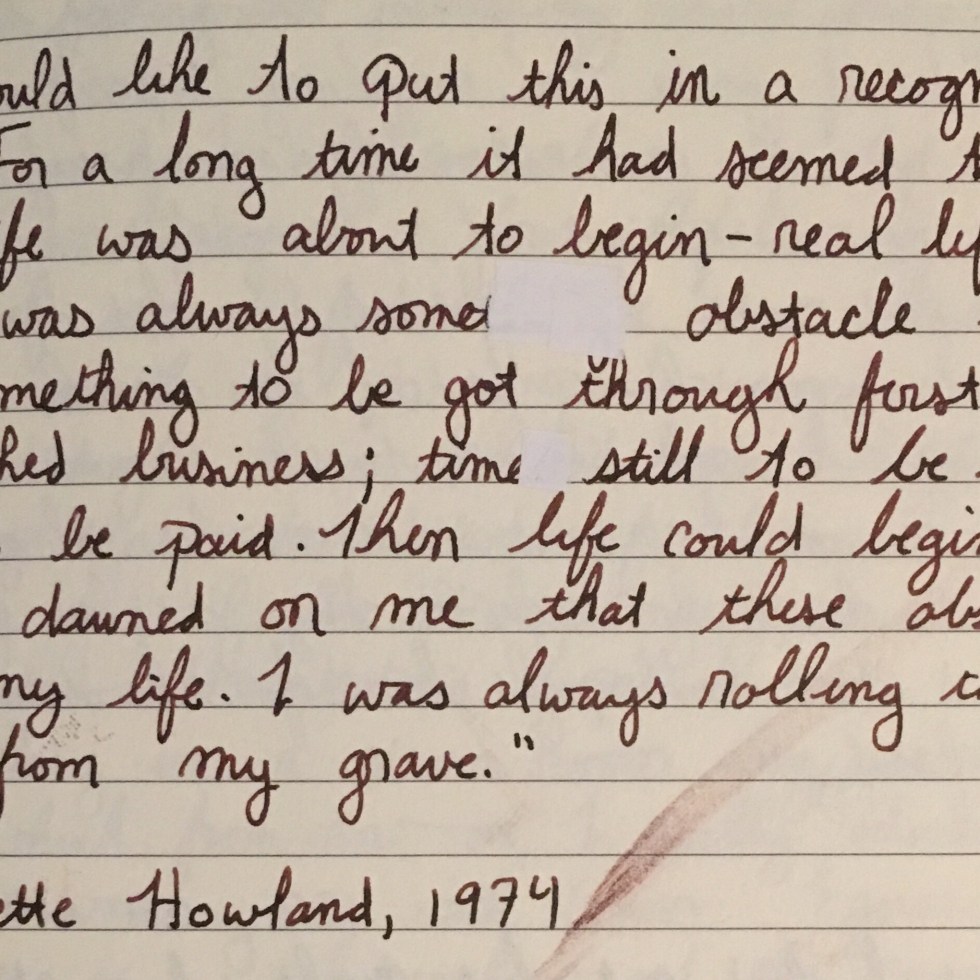 ould like to put this in a recogn
For a long time it had seemed t
fe was about to begin - real lif
was always some obstacle
mething to be got through first
hed business; time still to be
be paid. Then life could begin
dawned on me that these obs
my life. I was always rolling
from my grave."
ette Howland, 1974